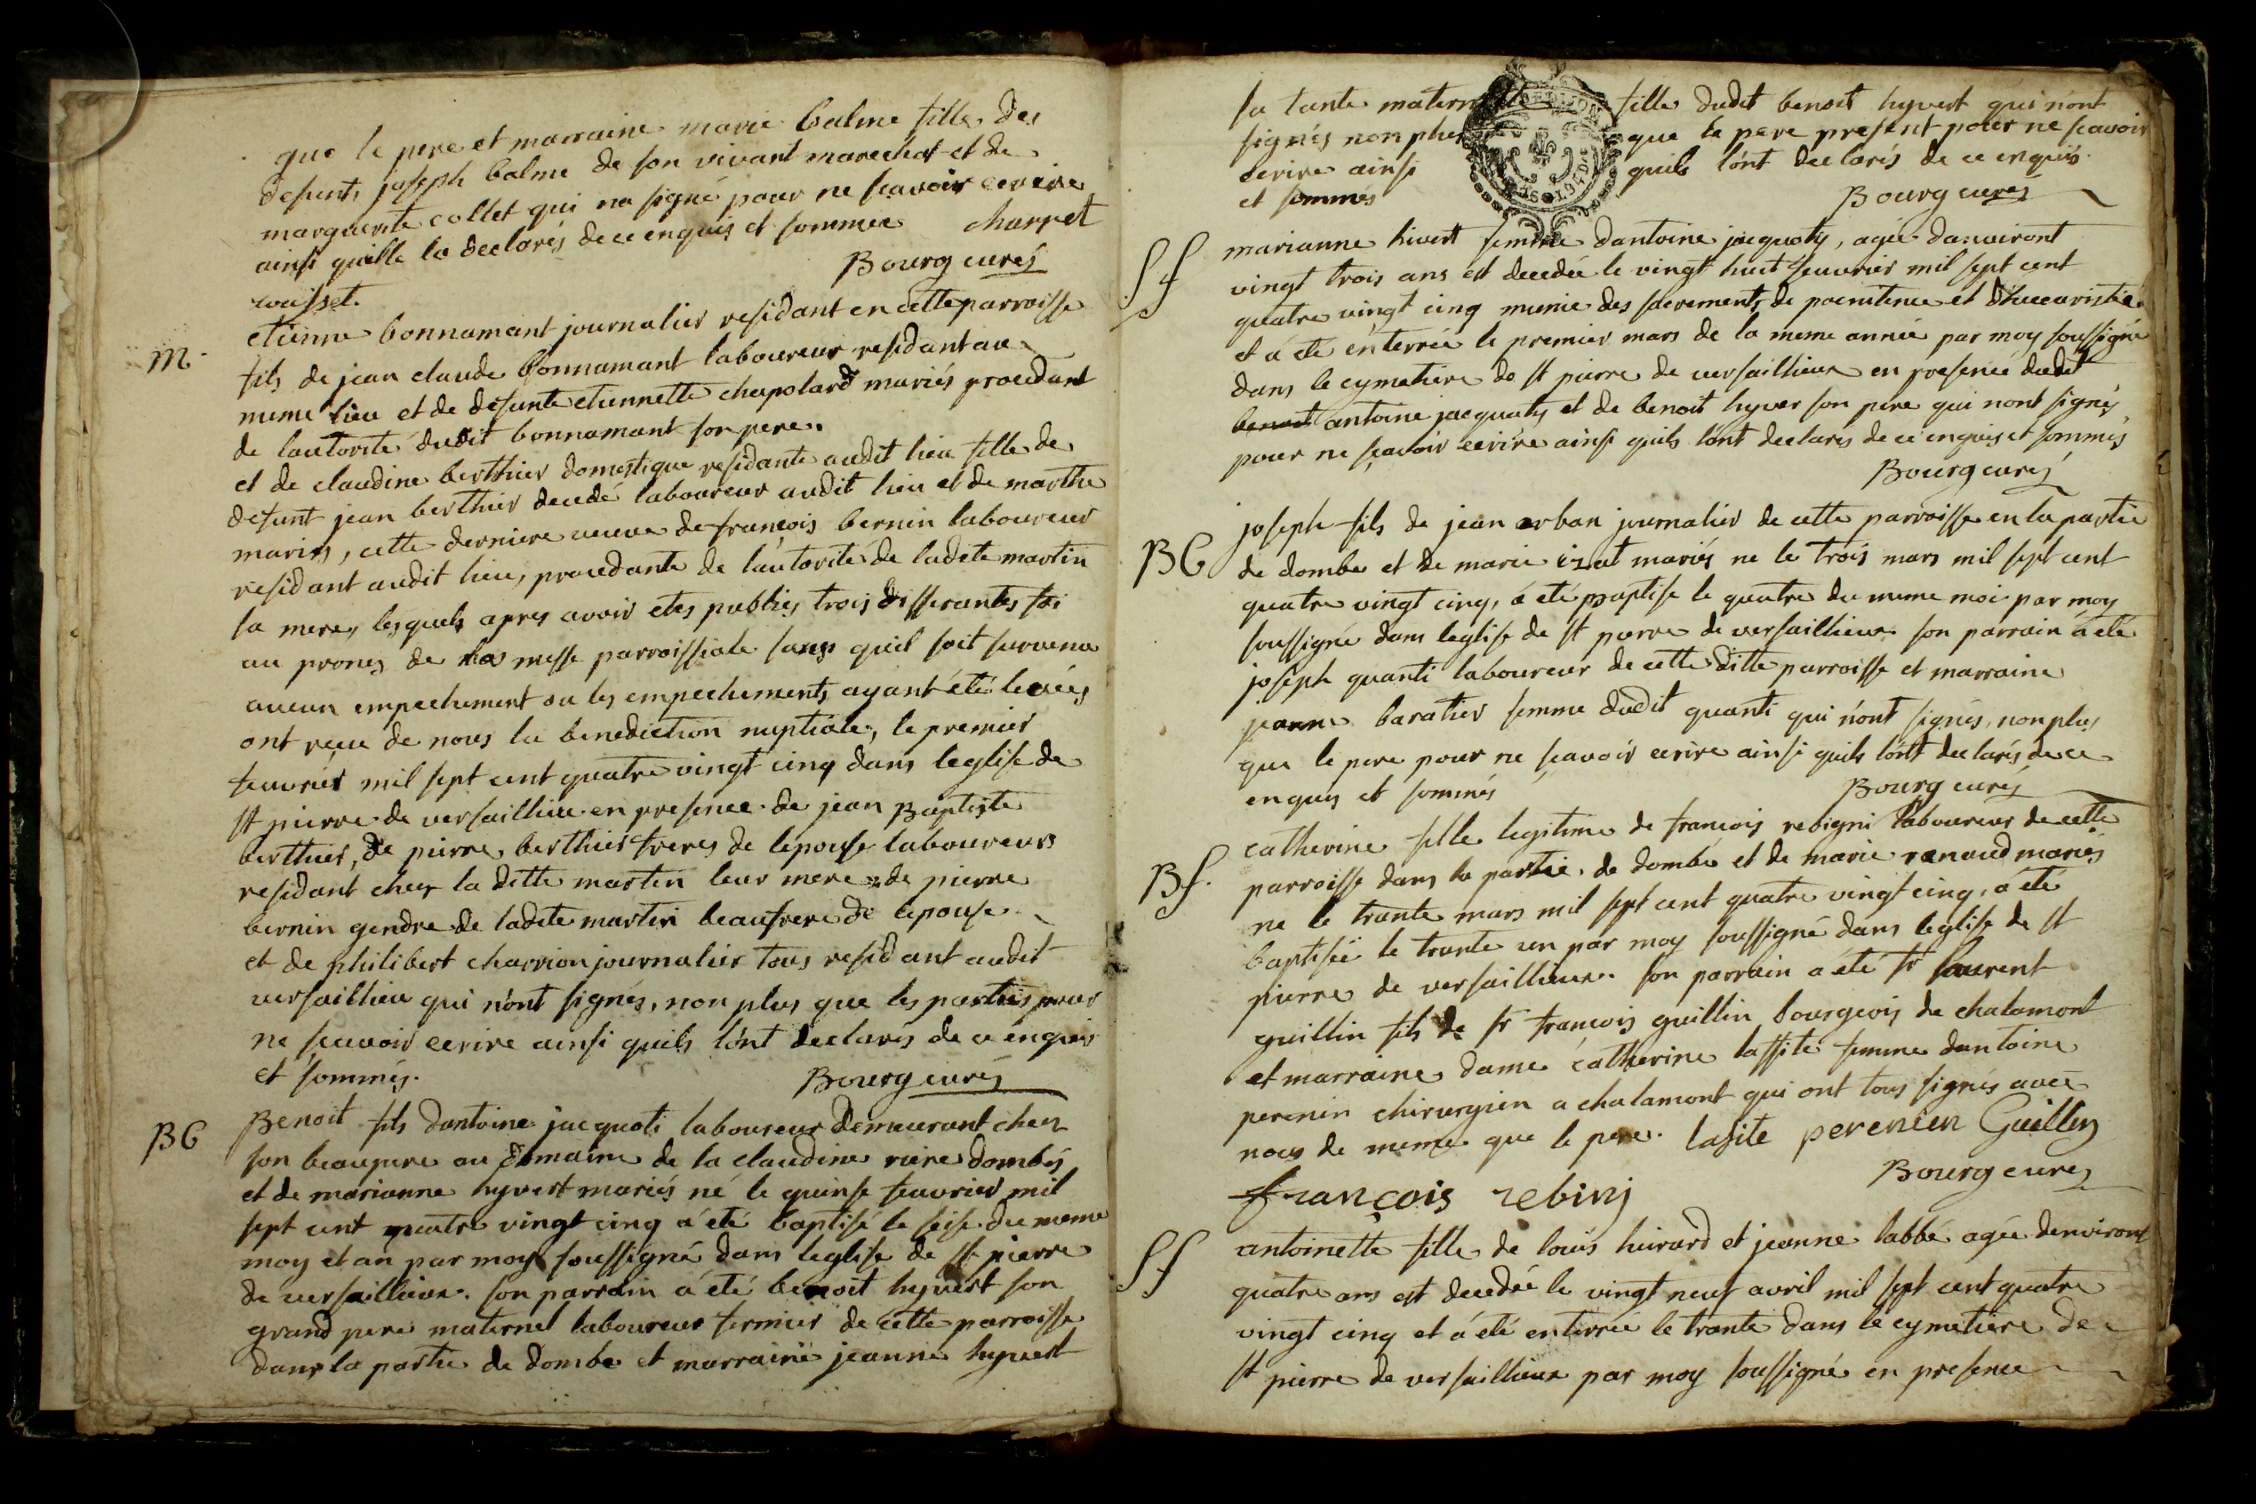 que le pere et marraine marie balme fille des
defunts joseph balme de son vivant marechal et de
marguerite collet qui na signé pour ne scavoir ecrire
ainsi quelle la declarés de ce enquis et sommée charpet
Bourg curéz
M. etienne bonnamant journalier residant en cette parroisse
fils de jean claude bonnamant laboureur residant au
meme lieu et de defunte etiennette chapolard mariés procedant
de lautorité dudit bonnamant son pere
et de claudine berthier domestique residante audit lieu fille de
defunt jean berthier decedé laboureur audit lieu et de marthe
, cette derniere veuve de françois bernin laboureur
residant audit lieu, procedante de lautorité de ladite martin
sa mere, lesquels apres avoir etés publiés trois differantes foi
au prones de messe parroissiale sans quil soit survenu
aucun empechement ou les empechements ayant été levées
ont recu de nous la benediction nuptiale, le premier
feuvrier mil sept cent quatre vingt cinq dans leglise de
st pierre de versaillieu en presence de jean Baptiste
berthier, de pierre berthier freres de lepouse laboureurs
residant chez la ditte martin leur mere de pierre
bernin gendre de ladite martin beaufrere de lepouse
et de philibert charrion journalier tous residant audit
versaillieu qui nónt signés, non plus que les parties pour
ne scavoir ecrire ainsi quils lónt declarés de ce enquis
et sommés. Bourg curéz
BG Benoit fils dantoine jacquoti laboureur demeurant chez
son beaupere au domaine de la claudine riere dombes
et de marianne hyvert mariés né le quinse feuvrier mil
sept cent quatre vingt cinq á été baptisé le seise du meme
moy et an par moy soussigné dans leglise de st pierre
de versaillieux. son parrain á été benoit hyvert son
grand pere maternel laboureur fermier de cette parroisse
dans la partie de dombe et marraine jeanne hyvert
sa tante maternelle fille dudit benoit hyvert qui nónt
signés non plus que le pere present pour ne scavoir
ecrire ainsi quils lónt declarés de ce enquis
et sommés Bourg curéz
Sf marianne hivert femme dantoine jacquoty, agée danviront
vingt trois ans est decedée le vingt huit feuvrier mil sept cent
quatre vingt cinq munie des sacrements de poenitence et dheucaristie
et á eté enterrée le premier mars de la meme année par moy soussigné
dans le cymetiere de st pierre de versaillieux en presence dudit
benoit antoine jacquaty et de benoit hyver son pere qui nont signés
pour ne scavoir ecrire ainsi quils lónt declarés de ce enquis et sommés
Bourg curéz
BG joseph fils de jean orban journalier de cette parroisse en la partie
de dombe et de marie izat mariés ne le trois mars mil sept cent
quatre vingt cinq, á eté baptise le quatre du meme moi par moy
soussigné dans leglise de st pierre de versaillieux son parrain á eté
joseph quanti laboureur de cette ditte parroisse et marraine
jeanne baratier femme dudit quanti qui nónt signés, non plus
que le pere pour ne scavoir ecrire ainsi quils lónt declarés de ce
enquis et sommés Bourg curéz
Bf. catherine fille legitime de francois rebigni laboureur de cette
parroisse dans la partie de dombe et de marie renaud mariés
ne le trante mars mil sept cent quatre vingt cinq, á été
baptiseé le trante un par moy soussigné dans leglise de st
pierre de versaillieux. son parrain a été sr laurent
guillin fils de sr francois guillin bourgeois de chalamont
et marraine dame catherine lassite femme dantoine
perenin chirurgien a chalamont qui ont tous signés avec
nous de meme que le pere. lasite perenien Guillin
françois rebinj Bourg curéz
Sf antoinette fille de louis huvard et jeanne labbé agée denviront
quatre ans est decedée le vingt neuf avril mil sept cent quatre
vingt cinq et á eté enterrée le trante dans le cymetiere de
st pierre de versaillieux par moy soussigné en presence